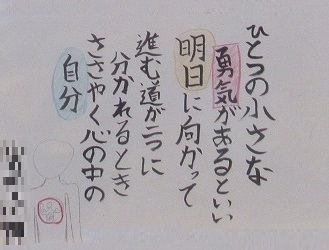 ひとつの小さな
勇気があるといい
明日に向かって
進む道が二つに
分かれるとき
ささやく心の中の
自分